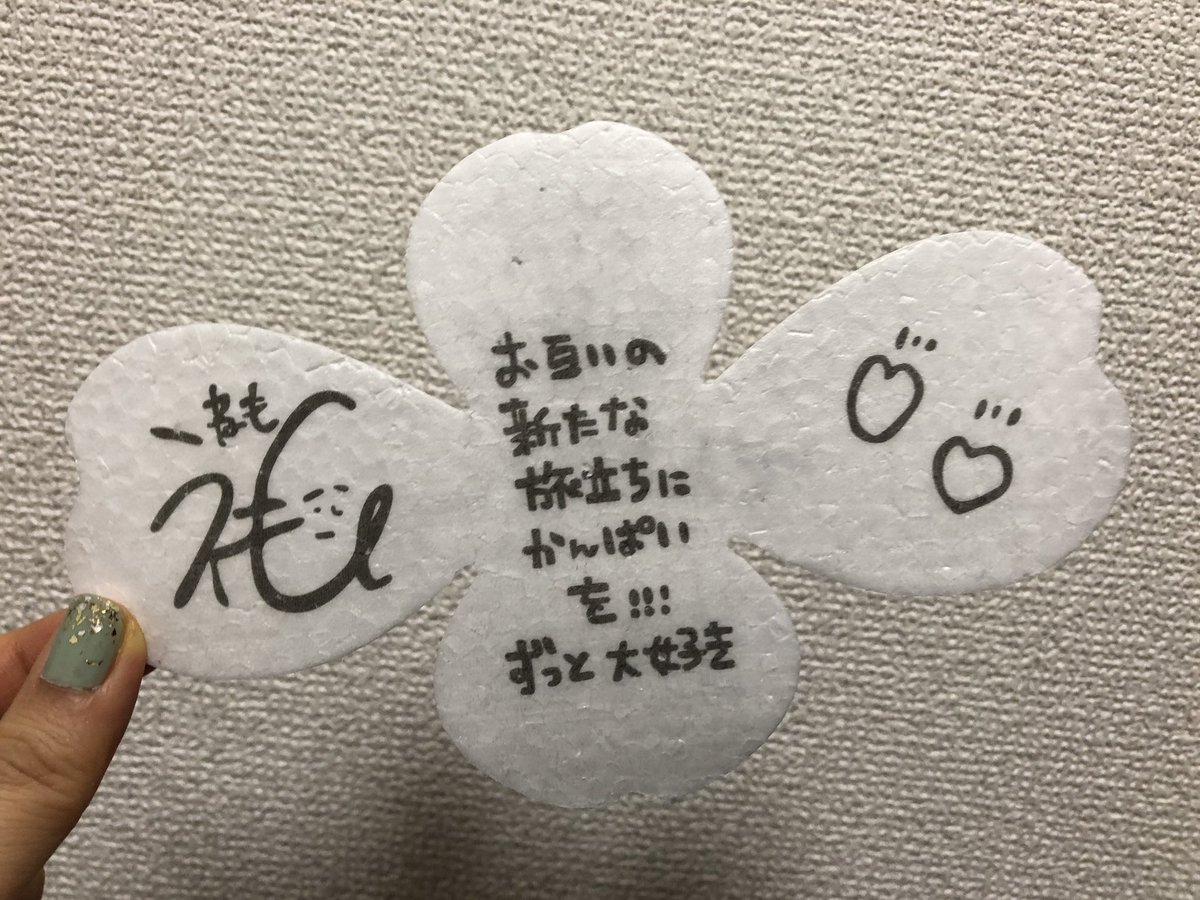 ねも
お互いの
新たな
旅立ちに
かんぱい
を!!!
ずっと大好き